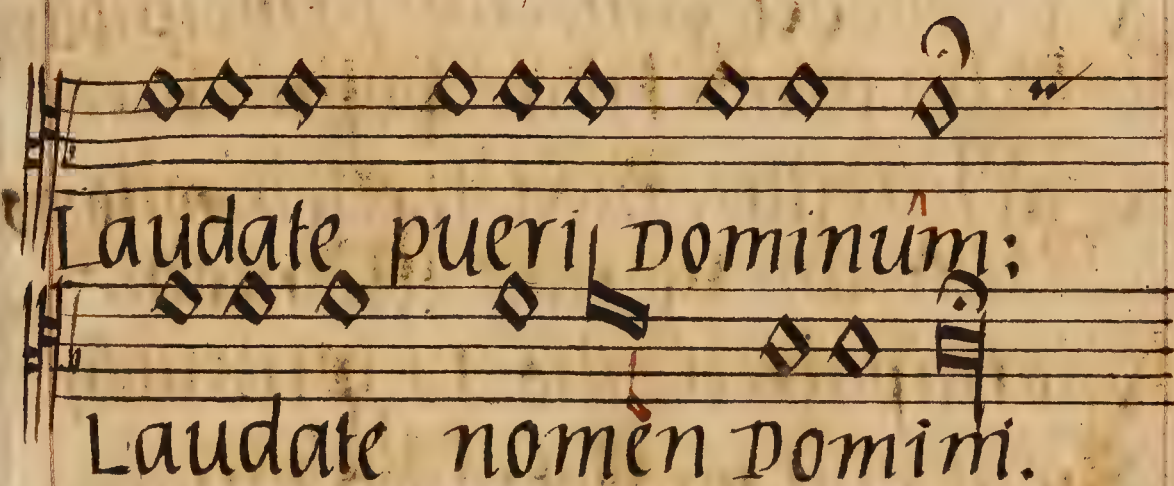 Laudate pueri Dominum:
Laudate nomen Domini.